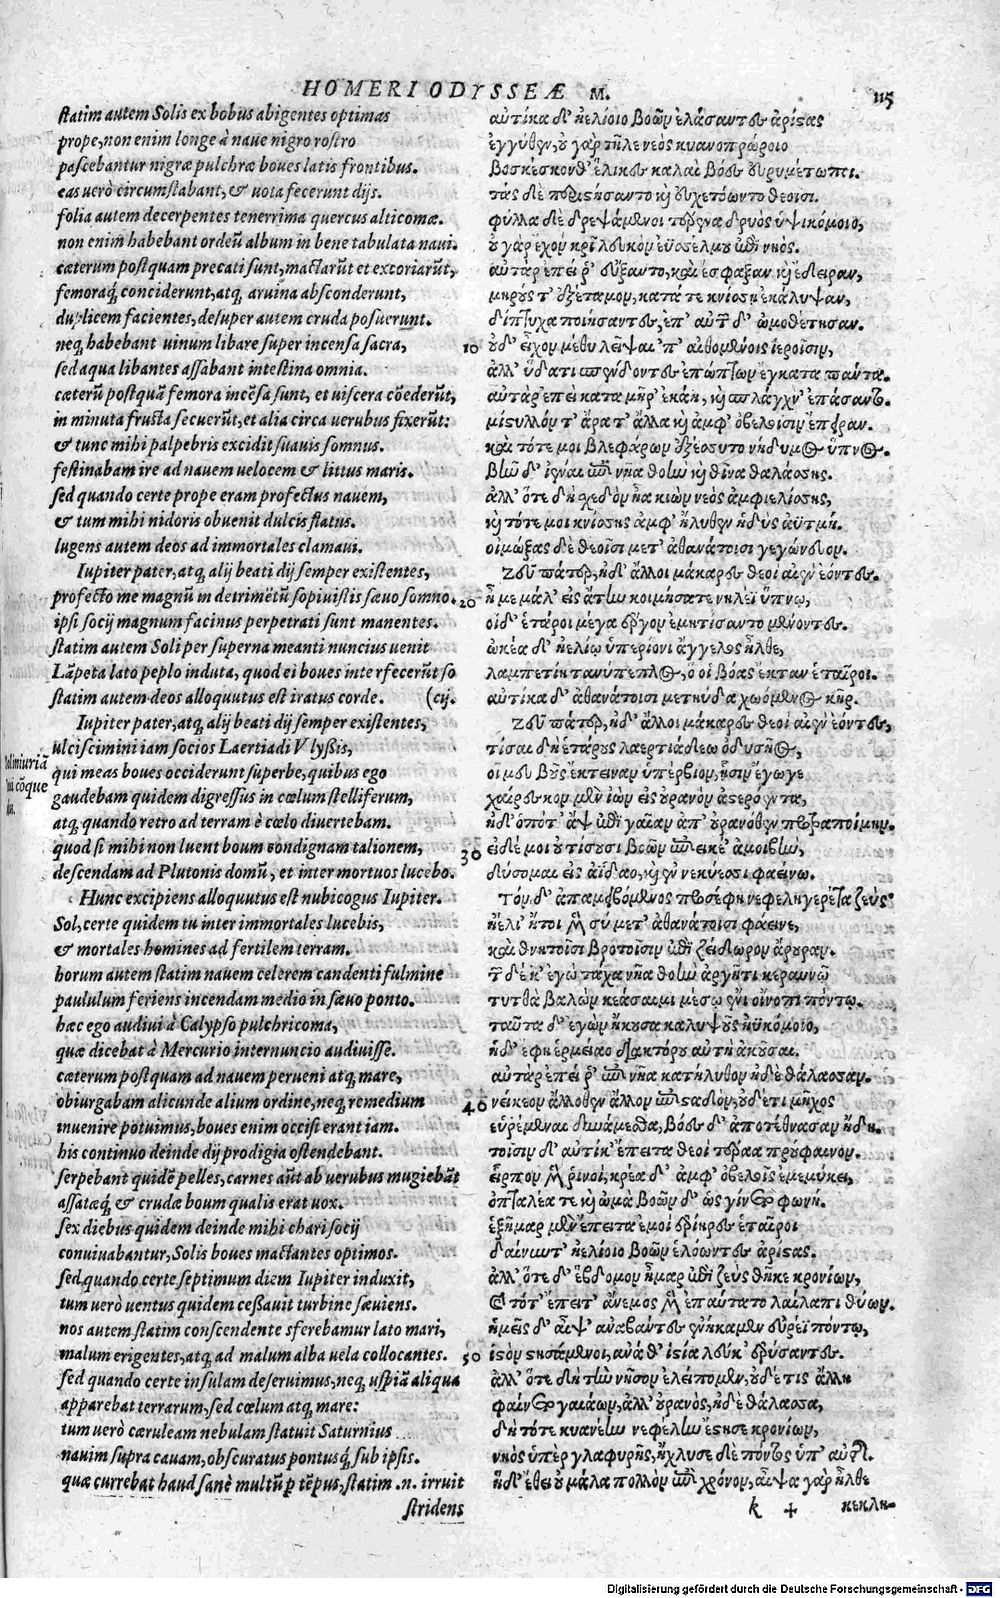 HOMERI ODYSSEÆ M. 115
statim autem Solis ex bobus abigentes optimas
prope, non enim longe à naue nigro rostro
pascebantur nigræ pulchræ boues latis frontibus.
eas uerò circumstabant, & uota fecerunt dijs.
folia autem decerpentes tenerrima quercus alticomæ.
non enim habebant ordeū album in bene tabulata naui.
cæterum postquam precati sunt, mactarūt et excoriarūt,
femoraq́; conciderunt, atq; aruina absconderunt,
duplicem facientes, desuper autem cruda posuerunt.
neq; habebant uinum libare super incensa sacra,
sed aqua libantes assabant intestina omnia.
cæterū postquā femora incēsa sunt, et uiscera cōederūt,
in minuta frusta secuerūt, et alia circa uerubus fixerūt:
& tunc mihi palpebris excidit suauis somnus.
festinabam ire ad nauem uelocem & littus maris.
sed quando certe prope eram profectus nauem,
& tum mihi nidoris obuenit dulcis flatus.
lugens autem deos ad immortales clamaui.
Iupiter pater, atq; alij beati dij semper existentes,
profecto me magnū in detrimētū sopiuistis sæuo somno.
ipsi socij magnum facinus perpetrati sunt manentes.
statim autem Soli per superna meanti nuncius uenit
Lāpeta lato peplo induta, quod ei boues interfecerūt so
statim autem deos alloquutus est iratus corde. (cij.
Iupiter pater, atq; alij beati dij semper existentes,
ulciscimini iam socios Laertiadi Vlyssis,
qui meas boues occiderunt superbe, quibus ego
gaudebam quidem digressus in cœlum stelliferum,
atq; quando retro ad terram è cœlo diuertebam.
quod si mihi non luent boum condignam talionem,
descendam ad Plutonis domū, et inter mortuos lucebo.
Hunc excipiens alloquutus est nubicogus Iupiter.
Sol, certe quidem tu inter immortales lucebis,
& mortales homines ad fertilem terram.
horum autem statim nauem celerem candenti fulmine
paululum feriens incendam medio in sæuo ponto.
hæc ego audiui à Calypso pulchricoma,
quæ dicebat à Mercurio internuncio audiuisse.
cæterum postquam ad nauem perueni atq; mare,
obiurgabam alicunde alium ordine, neq; remedium
inuenire potuimus, boues enim occisi erant iam.
his continuo deinde dij prodigia ostendebant.
serpebant quidē pelles, carnes aūt ab uerubus mugiebāt
assatæq́; & crudæ boum qualis erat uox.
sex diebus quidem deinde mihi chari socij
conuiuabantur, Solis boues mactantes optimos.
sed quando certe septimum diem Iupiter induxit,
tum uerò uentus quidem cessauit turbine sæuiens.
nos autem statim conscendente sferebamur lato mari,
malum erigentes, atq; ad malum alba uela collocantes.
sed quando certe insulam deseruimus, neq; uspiā aliqua
apparebat terrarum, sed cœlum atq; mare:
tum uerò cæruleam nebulam statuit Saturnius
nauim supra cauam, obscuratus pontusq́; sub ipsis.
quæ currebat haud sanè multū ꝑ tēpus, statim .n. irruit
stridens
αὐτίκα δ' ἠελίοιο βοῶν ἐλάσαντες ἀρίστας
ἐγγύθεν, οὐ γὰρ τῆλε νεὸς κυανοπρώροιο
βοσκέσκονθ' ἕλικες καλαὶ βόες εὐρυμέτωποι.
τὰς δὲ περιστήσαντο καὶ εὐχετόωντο θεοῖσι.
φύλλα δὲ δρεψάμενοι τέρενα δρυὸς ὑψικόμοιο,
οὐ γὰρ ἔχον κρῖ λευκὸν ἐϋσσέλμου ἐπὶ νηός.
αὐτὰρ ἐπεί ῥ' εὔξαντο, καὶ ἔσφαξαν καὶ ἔδειραν,
μηρούς τ' ἐξέταμον, κατά τε κνίσῃ ἐκάλυψαν,
δίπτυχα ποιήσαντες, ἐπ' αὐτῶν δ' ὠμοθέτησαν.
10 οὐδ' εἶχον μέθυ λεῖψαι ἐπ' αἰθομένοις ἱεροῖσιν,
ἀλλ' ὕδατι σπένδοντες ἐπώπτων ἔγκατα πάντα.
αὐτὰρ ἐπεὶ κατὰ μῆρ' ἐκάη, καὶ σπλάγχν' ἐπάσαντο.
μίστυλλόν τ' ἄρα τ' ἄλλα καὶ ἀμφ' ὀβελοῖσιν ἔπειραν.
καὶ τότε μοι βλεφάρων ἐξέσσυτο νήδυμος ὕπνος.
βῆν δ' ἰέναι ἐπὶ νῆα θοὴν καὶ θῖνα θαλάσσης.
ἀλλ' ὅτε δὴ σχεδὸν ἦα κιὼν νεὸς ἀμφιελίσσης,
καὶ τότε μοι κνίσης ἀμφ' ἤλυθεν ἡδὺς ἀϋτμή.
οἰμώξας δὲ θεοῖσι μετ' ἀθανάτοισι γεγώνευν.
Ζεῦ πάτερ, ἠδ' ἄλλοι μάκαρες θεοὶ αἰὲν ἐόντες.
20 ἦ με μάλ' εἰς ἄτην κοιμήσατε νηλέϊ ὕπνῳ,
οἱ δ' ἕταροι μέγα ἔργον ἐμητίσαντο μένοντες.
ὠκέα δ' ἠελίῳ ὑπερίονι ἄγγελος ἦλθε,
λαμπετίη τανύπεπλος, ὅ οἱ βόας ἔκταν ἑταῖροι.
αὐτίκα δ' ἀθανάτοισι μετηύδα χωόμενος κῆρ.
Ζεῦ πάτερ, ἠδ' ἄλλοι μάκαρες θεοὶ αἰὲν ἐόντες,
τίσαι δὴ ἑτάρους λαερτιάδεω ὀδυσῆος,
οἵ μευ βοῦς ἔκτειναν ὑπέρβιον, ᾗσιν ἔγωγε
χαίρεσκον μὲν ἰὼν εἰς οὐρανὸν ἀστερόεντα,
ἠδ' ὁπότ' ἂψ ἐπὶ γαῖαν ἀπ' οὐρανόθεν προτραποίμην.
30 εἰ δέ μοι οὐ τίσουσι βοῶν ἐπιεικέ' ἀμοιβὴν,
δύσομαι εἰς ἀΐδαο, καὶ ἐν νεκύεσσι φαείνω.
Τὸν δ' ἀπαμειβόμενος προσέφη νεφεληγερέτα ζεύς·
ἠέλι' ἤτοι μὲν σὺ μετ' ἀθανάτοισι φάεινε,
καὶ θνητοῖσι βροτοῖσιν ἐπὶ ζείδωρον ἄρουραν.
τῶν δέ κ' ἐγὼ τάχα νῆα θοὴν ἀργῆτι κεραυνῷ
τυτθὰ βαλὼν κεάσαιμι μέσῳ ἐνὶ οἴνοπι πόντῳ.
ταῦτα δ' ἐγὼν ἤκουσα καλυψοῦς ἠϋκόμοιο,
ἡ δ' ἔφη ἑρμείαο διακτόρου αὐτὴ ἀκοῦσαι.
αὐτὰρ ἐπεί ῥ' ἐπὶ νῆα κατήλυθον ἠδὲ θάλασσαν.
40 νείκεον ἄλλοθεν ἄλλον ἐπισταδὸν, οὐδέ τι μῆχος
εὑρέμεναι δυνάμεσθα, βόες δ' ἀποτέθνασαν ἤδη.
τοῖσιν δ' αὐτίκ' ἔπειτα θεοὶ τέραα προὔφαινον.
εἷρπον μὲν ῥινοὶ, κρέα δ' ἀμφ' ὀβελοῖς ἐμεμύκει,
ὀπταλέα τε καὶ ὠμὰ βοῶν δ' ὣς γίνετο φωνή.
ἑξῆμαρ μὲν ἔπειτα ἐμοὶ ἐρίηρες ἑταῖροι
δαίνυντ' ἠελίοιο βοῶν ἐλόωντες ἀρίστας.
ἀλλ' ὅτε δ' ἕβδομον ἦμαρ ἐπὶ ζεὺς θῆκε κρονίων,
καὶ τότ' ἔπειτ' ἄνεμος μὲν ἐπαύσατο λαίλαπι θύων.
ἡμεῖς δ' αἶψ' ἀναβάντες ἐνήκαμεν εὐρέϊ πόντῳ,
50 ἱστὸν στησάμενοι, ἀνά θ' ἱστία λεύκ' ἐρύσαντες.
ἀλλ' ὅτε δὴ τὴν νῆσον ἐλείπομεν, οὐδέ τις ἄλλη
φαίνετο γαιάων, ἀλλ' οὐρανὸς, ἠδὲ θάλασσα,
δὴ τότε κυανέην νεφέλην ἔστησε κρονίων,
νηὸς ὑπὲρ γλαφυρῆς, ἤχλυσε δὲ πόντος ὑπ' αὐτῆς.
ἡ δ' ἔθει οὐ μάλα πολλὸν ἐπὶ χρόνον, αἶψα γὰρ ἦλθε
k + κεκλη-
Digitalisierung gefördert durch die Deutsche Forschungsgemeinschaft - DFG